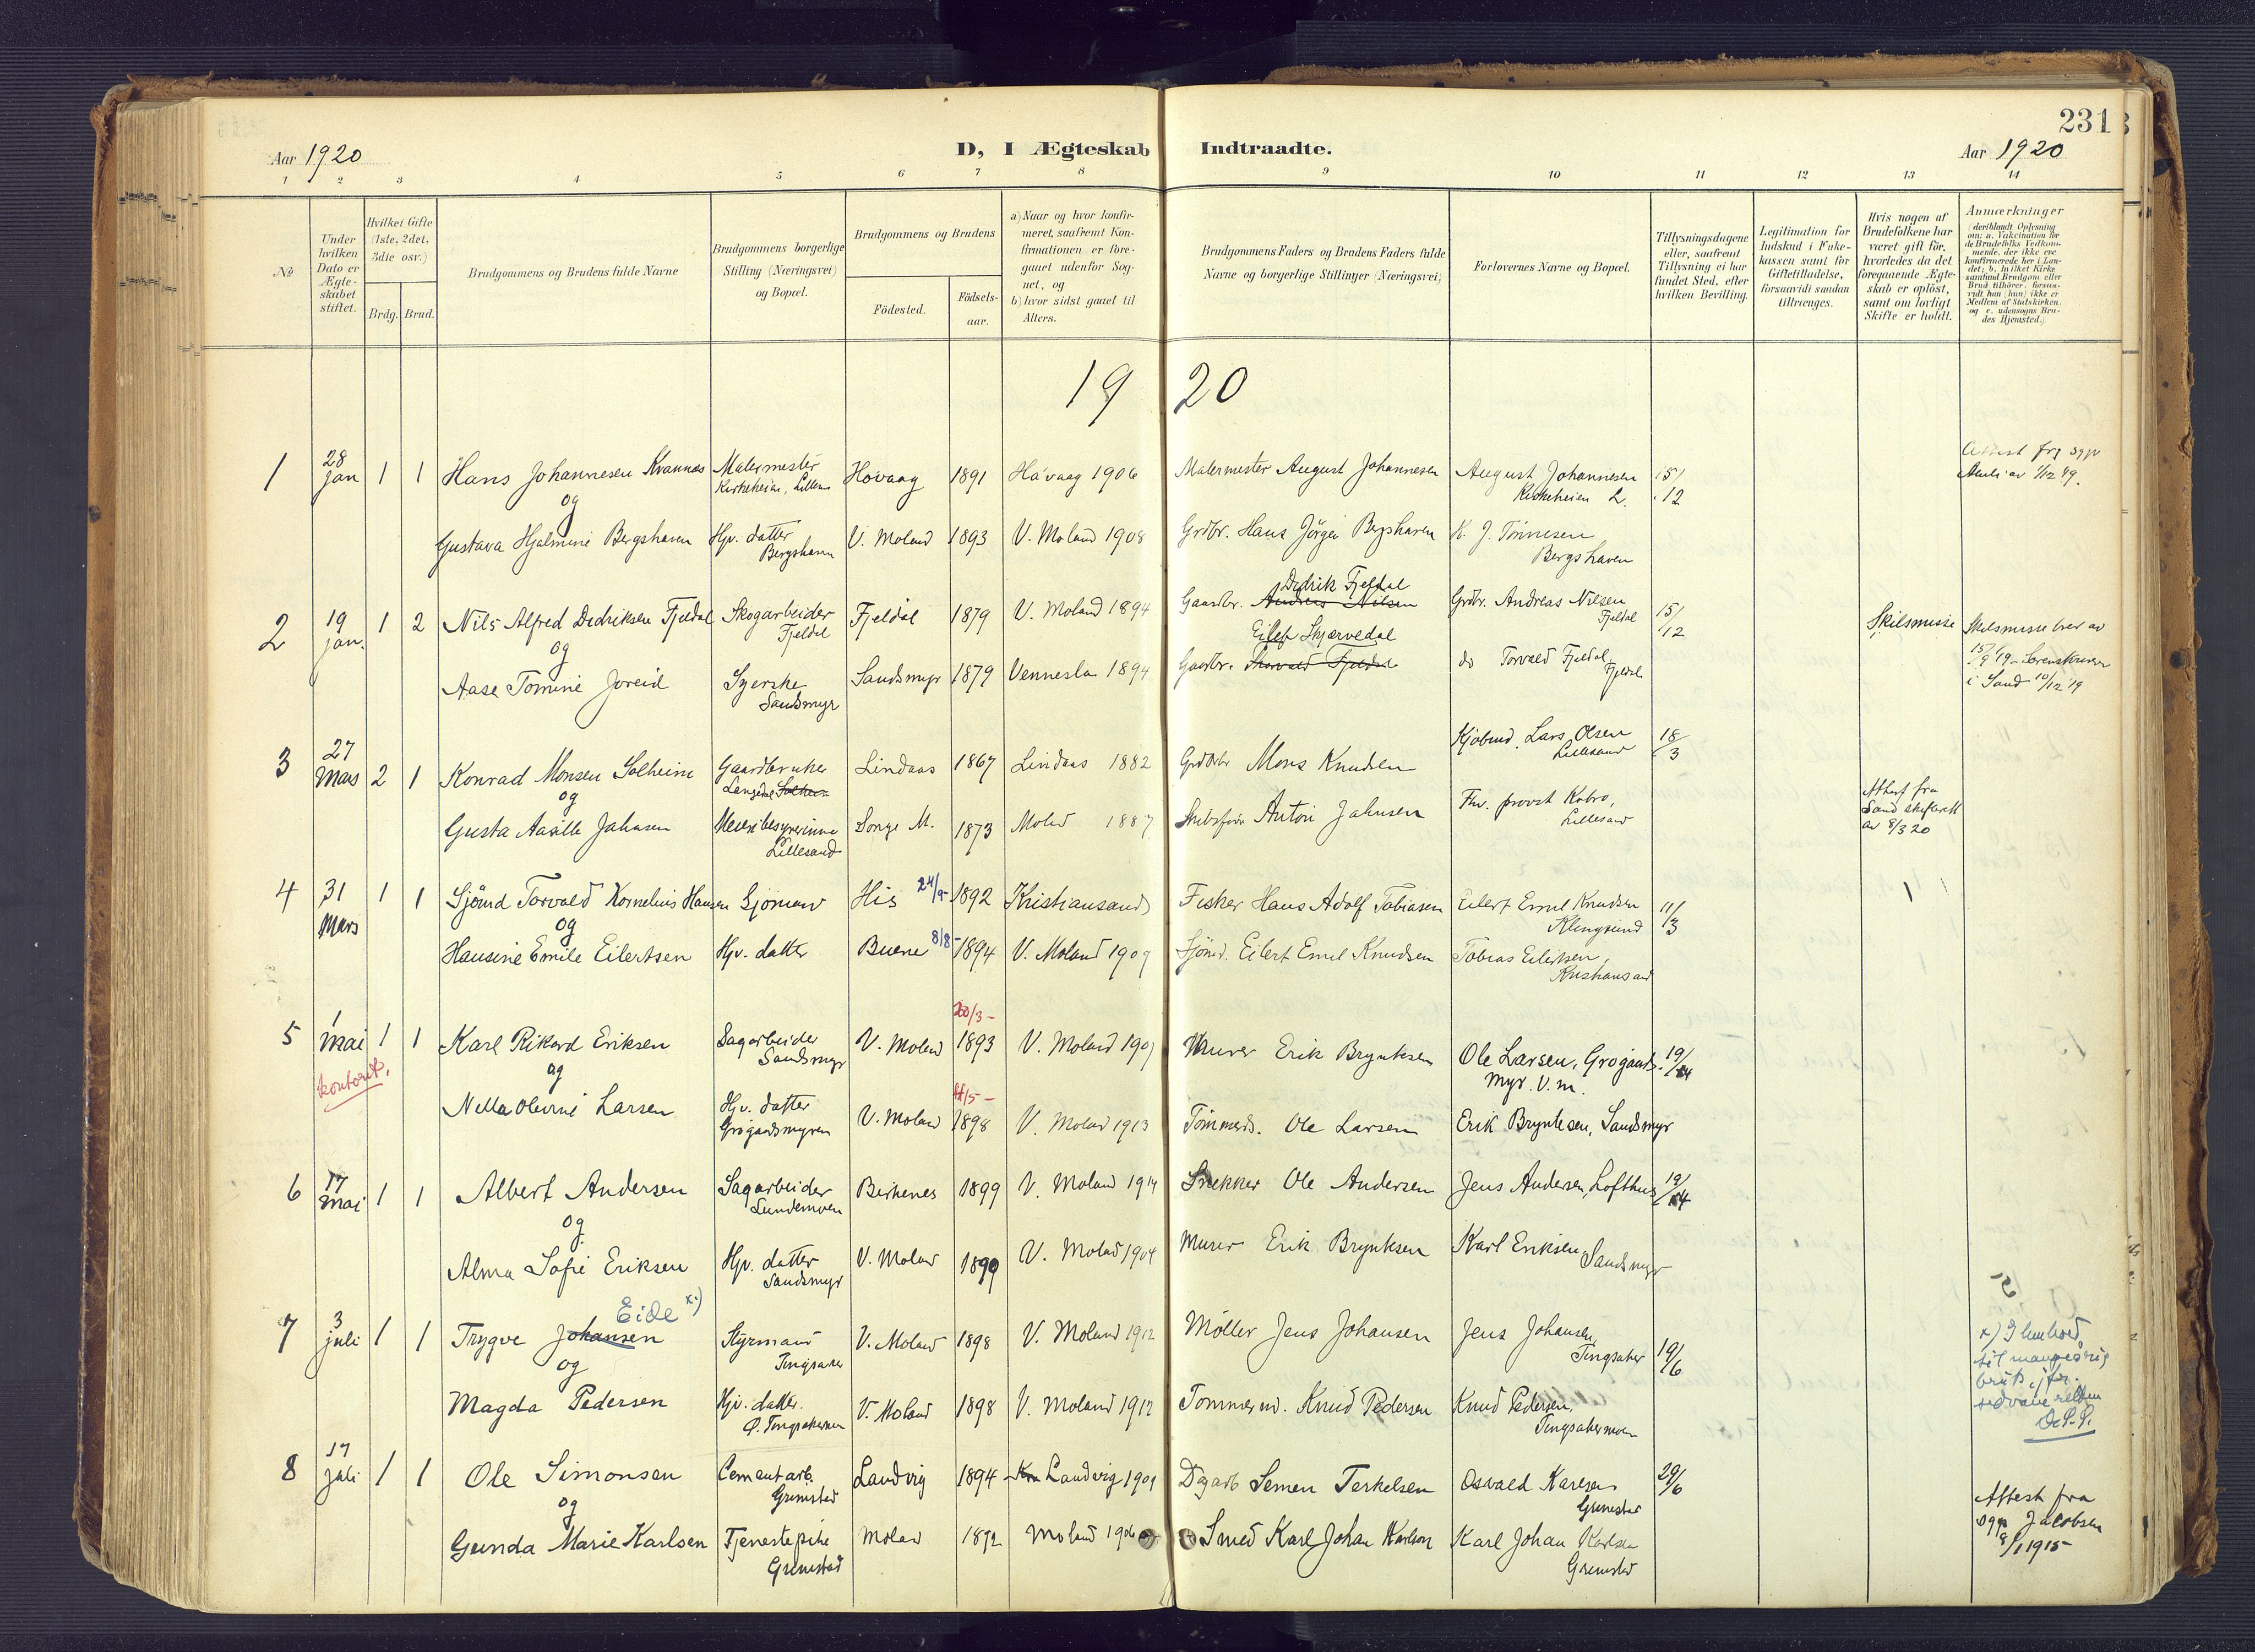 231
Aar 1920
D, I Ægteskab Indtraadte.
Aar 1920
1 2 3 4 5 6 7 8 9 10 11 12 13 14
No
Under hvilken Dato er Ægteskabet stiftet.
Hvilket Gifte (1ste, 2det, 3die osv.)
Brdg. Brud.
Brudgommens og Brudens fulde Navne
Brudgommens borgerlige Stilling (Næringsvei) og Bopæl.
Brudgommens og Brudens
Födested.
Födsels-aar.
a) Naar og hvor konfirmeret, saafremt Konfirmationen er foregaaet udenfor Sognet, og
b) hvor sidst gaaet til Alters.
Brudgommens Faders og Brudens Faders fulde Navne og borgerlige Stillinger (Næringsvei)
Forlovernes Navne og Bopæl.
Tillysningsdagene eller, saafremt Tillysning ei har fundet Sted, efter hvilken Bevilling.
Legitimation for Indskud i Enkekassen samt for Giftetilladelse, forsaavidt saadan tiltrænges.
Hvis nogen af Brudefolkene har været gift för, hvorledes da det foregaaende Ægteskab er oplöst, samt om lovligt Skifte er holdt.
Anmærkninger (deriblandt Oplysning om: a. Vakcination for de Brudefolks Vedkommende, der ikke ere konfirmerede her i Landet; b. hvilket Kirkesamfund Brudgom eller Brud tilhörer, forsaavidt han (hun) ikke er Medlem af Statskirken, og c. udensogns Brudes Hjemsted.)
1920
1 28 jan 1 1 Hans Johannesen Kvannes Malermester Kirkeheien, Lillens Hövaag 1891 Håvaag 1906 Malermester August Johannesen August Johannesen Kirkeheien L. 15/12
og
Gustava Hjalmine Bergshaven Hjv. datter Bergshavn V. Moland 1893 V. Moland 1908 Grdbr. Hans Jörgen Bergshaven K. J. Tönnesen Bergshaven
2 19 jan. 1 2 Nils Alfred Didriksen Fjeldal Skogarbeider Fjeldal Fjeldal 1879 V. Moland 1894 Gaardbr. Andreas Nilsen Didrik Fjeldal Grdbr. Andreas Nilsen Fjeldal 15/12 Skilsmisse
og
Aase Tomine Joreid Syerske Sandsmyr Sandsmyr 1879 Vennesla 1894 Gaardbr. Thorvald Fjeldal Eilef Skjærvedal do Torvald Fjeldal, Fjeldal
3 27 Mars 2 1 Konrad Monsen Solheim Gaardbruker Langedal Solheim Lindaas 1867 Lindaas 1882 Grdbr Mons Knudsen Kjöbmd. Lars Olsen Lillesand 18/3 Attest fra Sand skifterett av 8/3 20
og
Gusta Aasille Jahnsen Meieribestyrerinne Lillesand Songe M. 1873 Molad 1887 Skibsförer Anton Jahnsen Fhv. provst Kobro, Lillesand
4 31 Mars 1 1 Sjömd Torvald Kornelius Hansen Sjömand His 24/9- 1892 Kristiansand Fisker Hans Adolf Tobiasen Eilert Emil Knudsen Klingsund 11/3
og
Hansine Emile Eilertsen Hjv. datter Buene 8/8- 1894 V. Moland 1909 Sjömd. Eilert Emil Knudsen Tobias Eilertsen, Kristiansand
5 1 mai kontoret. 1 1 Karl Rikard Eriksen Sagarbeider Sandsmyr V. Moland 20/3- 1893 V. Moland 1907 Murer Erik Bryntesen Ole Larsen, Grogaardsmyr. V. M. 19/4
og
Nella Olevine Larsen Hjv. datter Grogaardsmyren V. Moland 1898 V. Moland 1913 Tömmerd. Ole Larsen Erik Bryntesen, Sandsmyr
6 17 mai 1 1 Albert Andersen Sagarbeider Lundemoen Birkenes 1899 V. Moland 1914 Snekker Ole Andersen Jens Andersen, Lofthus 19/4
og
Alma Sofie Eriksen Hjv. datter Sandsmyr V. Moland 1899 V. Moland 1904 Murer Erik Bryntesen Karl Eriksen, Sandsmyr
7 3 juli 1 1 Trygve Johansen Eide x) Styrmand Tingsaker V. Moland 1898 V. Moland 1912 Möller Jens Johansen Jens Johansen, Tingsaker 19/6
og
Magda Pedersen Hjv. datter. Ø. Tingsakermoen V. Moland 1898 V. Moland 1912 Tömmermd. Knud Pedersen Knud Pedersen, Tingsakermoen
8 17 juli 1 1 Ole Simonsen Cementarb. Grimstad Landvig 1894 Landvig 1909 Dagarb Semen Terkelsen Osvald Karlsen Grimstad 29/6 Attest fra sgp. Jacobsen 8/1 1915
og
Gunda Marie Karlsen Tjenestepike Grimstad Moland 1892 Moland 1906 Smed Karl Johan Karlsen Karl Johan Karlsen Grimstad